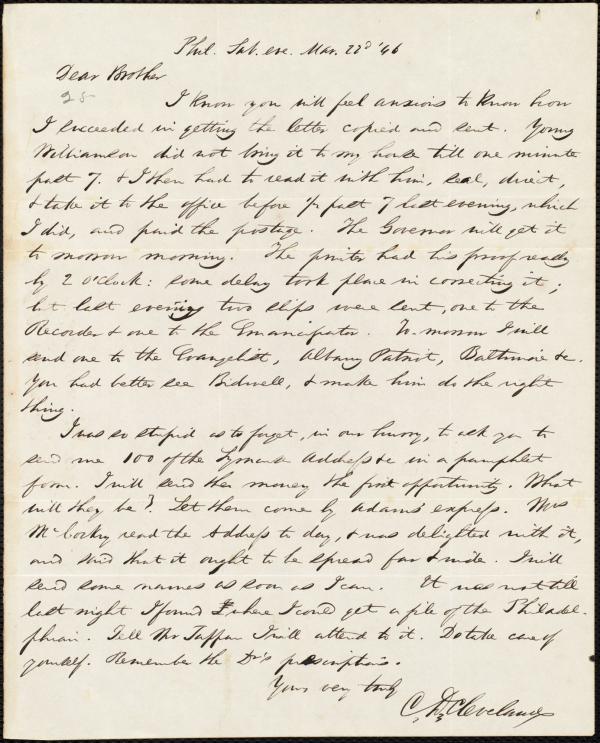 Phil. Sab. eve. Mar. 22d '46
Dear Brother
25
I know you will feel anxious to know how
I succeeded in getting the letter copied and sent. Young
Williamson did not bring it to my house till one minute
past 7. & I then had to read it with him, seal, direct,
& take it to the office before ½ past 7 last evening, which
I did, and paid the postage. The Governor will get it
to morrow morning. The printer had his proof ready
by 2 o'clock: some delay took place in correcting it;
but last evening two slips were sent, one to the
Recorder & one to the Emancipator. To-morrow I will
send one to the Evangelist, Albany Patriot, Baltimore &c.
You had better see Bidwell, & make him do the right
thing.
I was so stupid as to forget, in our hurry, to ask you to
send me 100 of the Address &c in a pamphlet
form. I will send the money the first opportunity. What
will they be? Let them come by Adams' express. Mrs
read the Address to day, & was delighted with it,
and said that it ought to be spread far & wide. I will
send some names as soon as I can. It was not till
last night I found where I could get a file of the Philadel-
phian. Tell Mr Tappan I will attend to it. Do take care of
yourself. Remember the Dr's prescriptions.
Yours very truly
C. D. Cleveland